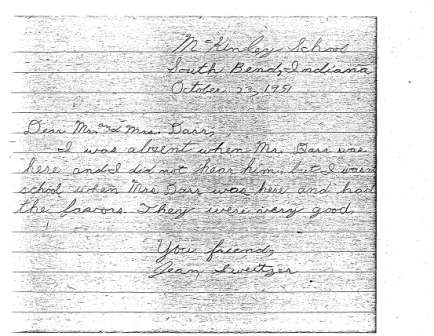 McKinley School
South Bend, Indiana
October 23, 1951
Dear Mr. & Mrs. Darr,
I was absent when Mr. Darr was
here and I did not hear him, but I was in
school when Mrs Darr was here and had
the favors. They were very good.
Your friend,
Jean Sweitzer